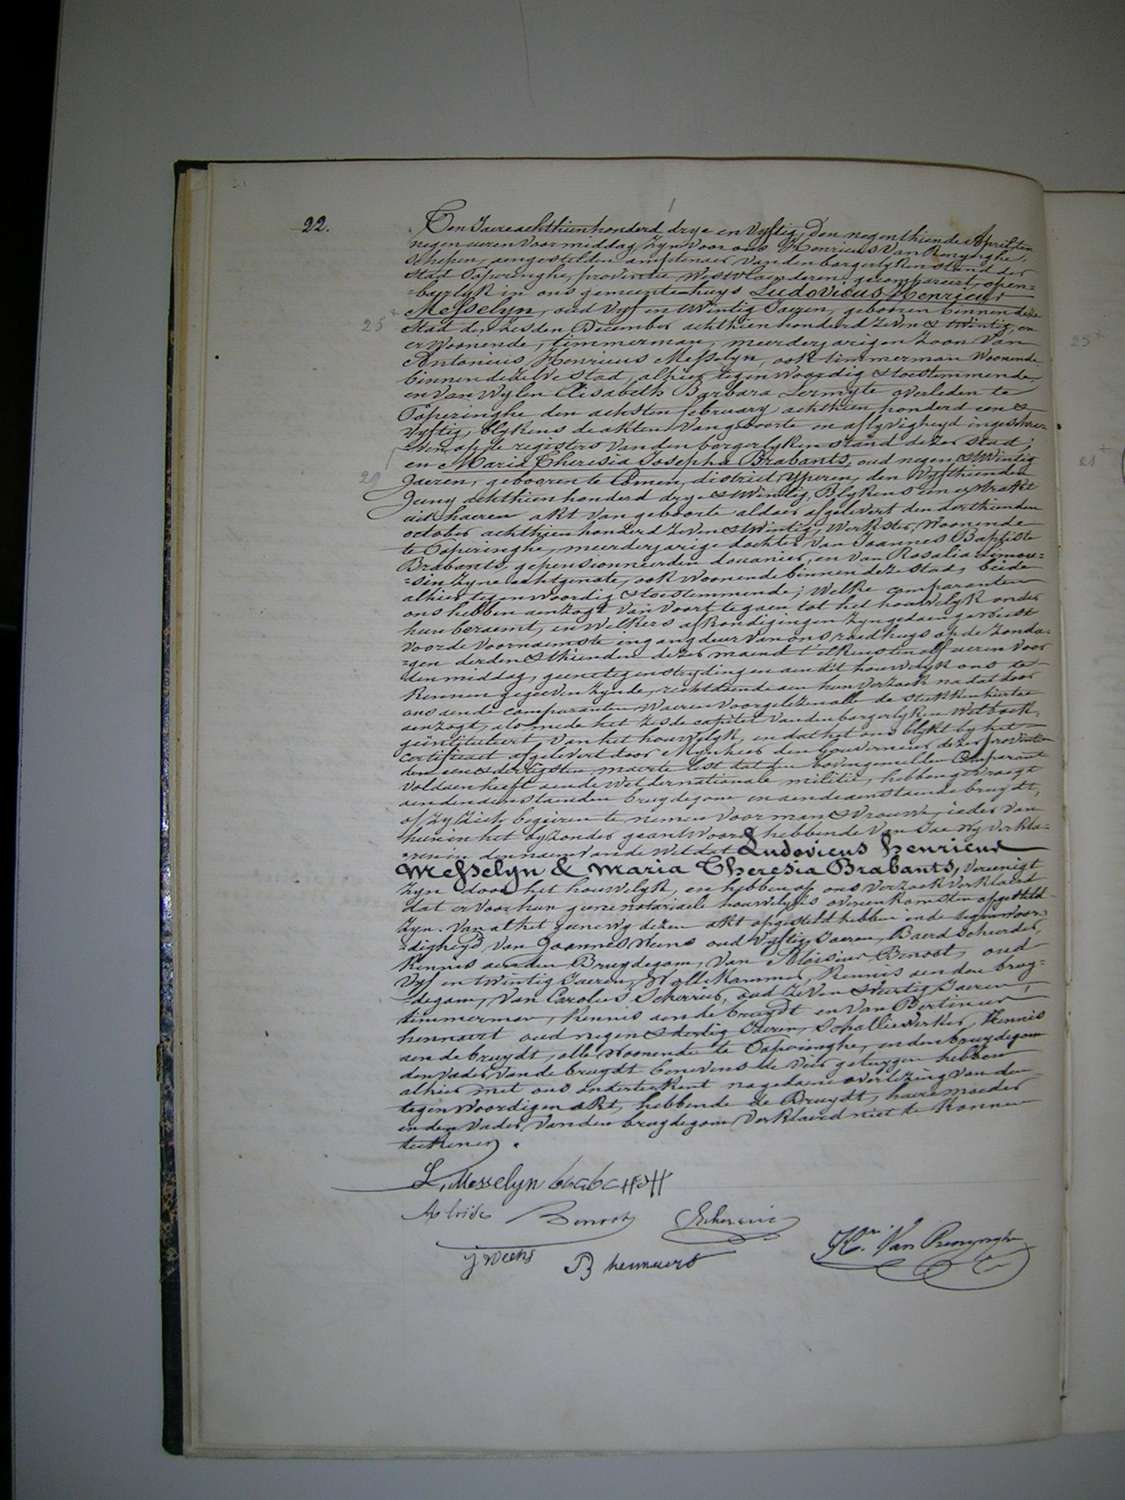 22.
Den Jaere achthien honderd drye en Vyftig, den negenthiende April ten
negen ueren Voormiddag, Zyn Voor ons Henricus Van Renynghe,
Schepen, aengestelden ampteneer van den borgerlyken Stand der
Stad Poperinghe, provintie Westvlaenderen, gecompareert open-
=baerlyk in ons gemeentenhuys Ludovicus Henricus
Messelyn, oud Vyf en twintig Jaeren, gebooren binnen deze
25
Stad den Zesden December achthien honderd Zeven & twintig, en
er Woonende, timmerman, meerderjarigen Zoon Van
Antonius Henricus Messelyn, ook timmerman Woonende
binnen dezelve Stad, alhier tegenwoordig & toestemmende,
en Van Wylen Elisabeth Barbara Lermyte overleden te
Poperinghe den achsten february achthien honderd een &
Vyftig, blykens de akten Van geboorte en aflyvigheyd ingeschre-
ven op de registers Van den borgerlyken Stand dezer Stad;
en Maria Theresia Josepha Brabants, oud negen & twintig
29
Jaeren, gebooren te Comen, district Yperen, den Vyfthienden
Juny achthien honderd drye & twintig, Blykens een extrakt
uit haeren akt Van geboorte aldaer afgelevert den derthienden
october achthien honderd Zeven & twintig, Werkster, Woonende
te Poperinghe, meerderjarige dochter Van Joannes Baptiste
Brabants, gepensionneerden douanier, en Van Rosalia
Zyne echtgenote, ook Woonende binnen deze Stad, beide
alhier tegenwoordig & toestemmende; Welke comparanten
ons hebben aenzogt Van Voort te gaen tot het houwelyk onder
hun beraemt, en Welkers afkondigingen Zyn gedaen geweest
Voor de Voornaemste ingangdeur Van ons raedhuys op de Zonda-
=gen derden & thienden dezer maend t'elkens ten elf ueren Voor
den middag, geene tegenstrydingen aen dit houwelyk ons te
Kennen gegeven Zynde, rechtdoende aen hun Verzoek na dat door
ons aen de comparanten Waeren Voorgelezen alle de Stukken hiertoe
aenzogt, als mede het Zesde capitel Van den borgerlyken Wetboek,
geïntituleert Van het houwelyk, en dat het ons blykt by het
certificaet afgelevert door Mynheer den gouverneur dezer provintie
den een & dertigsten maerte lest dat den bovengemelden Comparant
Voldaen heeft aen de Wet der nationale militie, hebben gevraegt
aen den aenstaenden bruydegom en aen de aenstaende bruydt,
of Zy Zich begeeren te nemen Voor man & Vrouwe, ieder Van
hun in het byzonder geantwoord hebbende Van Jae Wy Verkla-
=ren in den naem Van de Wet dat Ludovicus Henricus
Messelyn & Maria Theresia Brabants, Vereenigt
Zyn door het houwelyk, en hebben op ons Verzoek Verklaerd
dat er Voor hun geene notariele houwelyks overeenkomsten opgesteld
Zyn. Van al het gene Wy dezen akt opgesteld hebben in de tegenwoor-
=digheyd Van Joannes Weens oud Vyftig Jaeren, Baerdscheerder,
Kennis aen den Bruydegom, Van Aloisius Benoot, oud
Vyf en twintig Jaeren, Wolle Kammer, Kennis aen den bruy-
=degom, Van Carolus Scherrier, oud Zeven & Jaeren,
timmerman, Kennis aen de bruydt en Van Bertinus
hennaert oud negen & dertig Jaeren, Schaliewerker, Kennis
aen de bruydt, alle Woonende te Poperinghe, en den bruydegom
den Vader Van de bruydt benevens de Vier getuygen hebben
alhier met ons onderteekent na gedaene overlezing Van den
tegenwoordigen akt, hebbende de Bruydt, haere moeder
en den Vader Van den bruydegom Verklaerd niet te konnen
teekenen.
L. Messelyn
Benoot
J Weens
B hennaert
Hri Van Renynghe
25
21